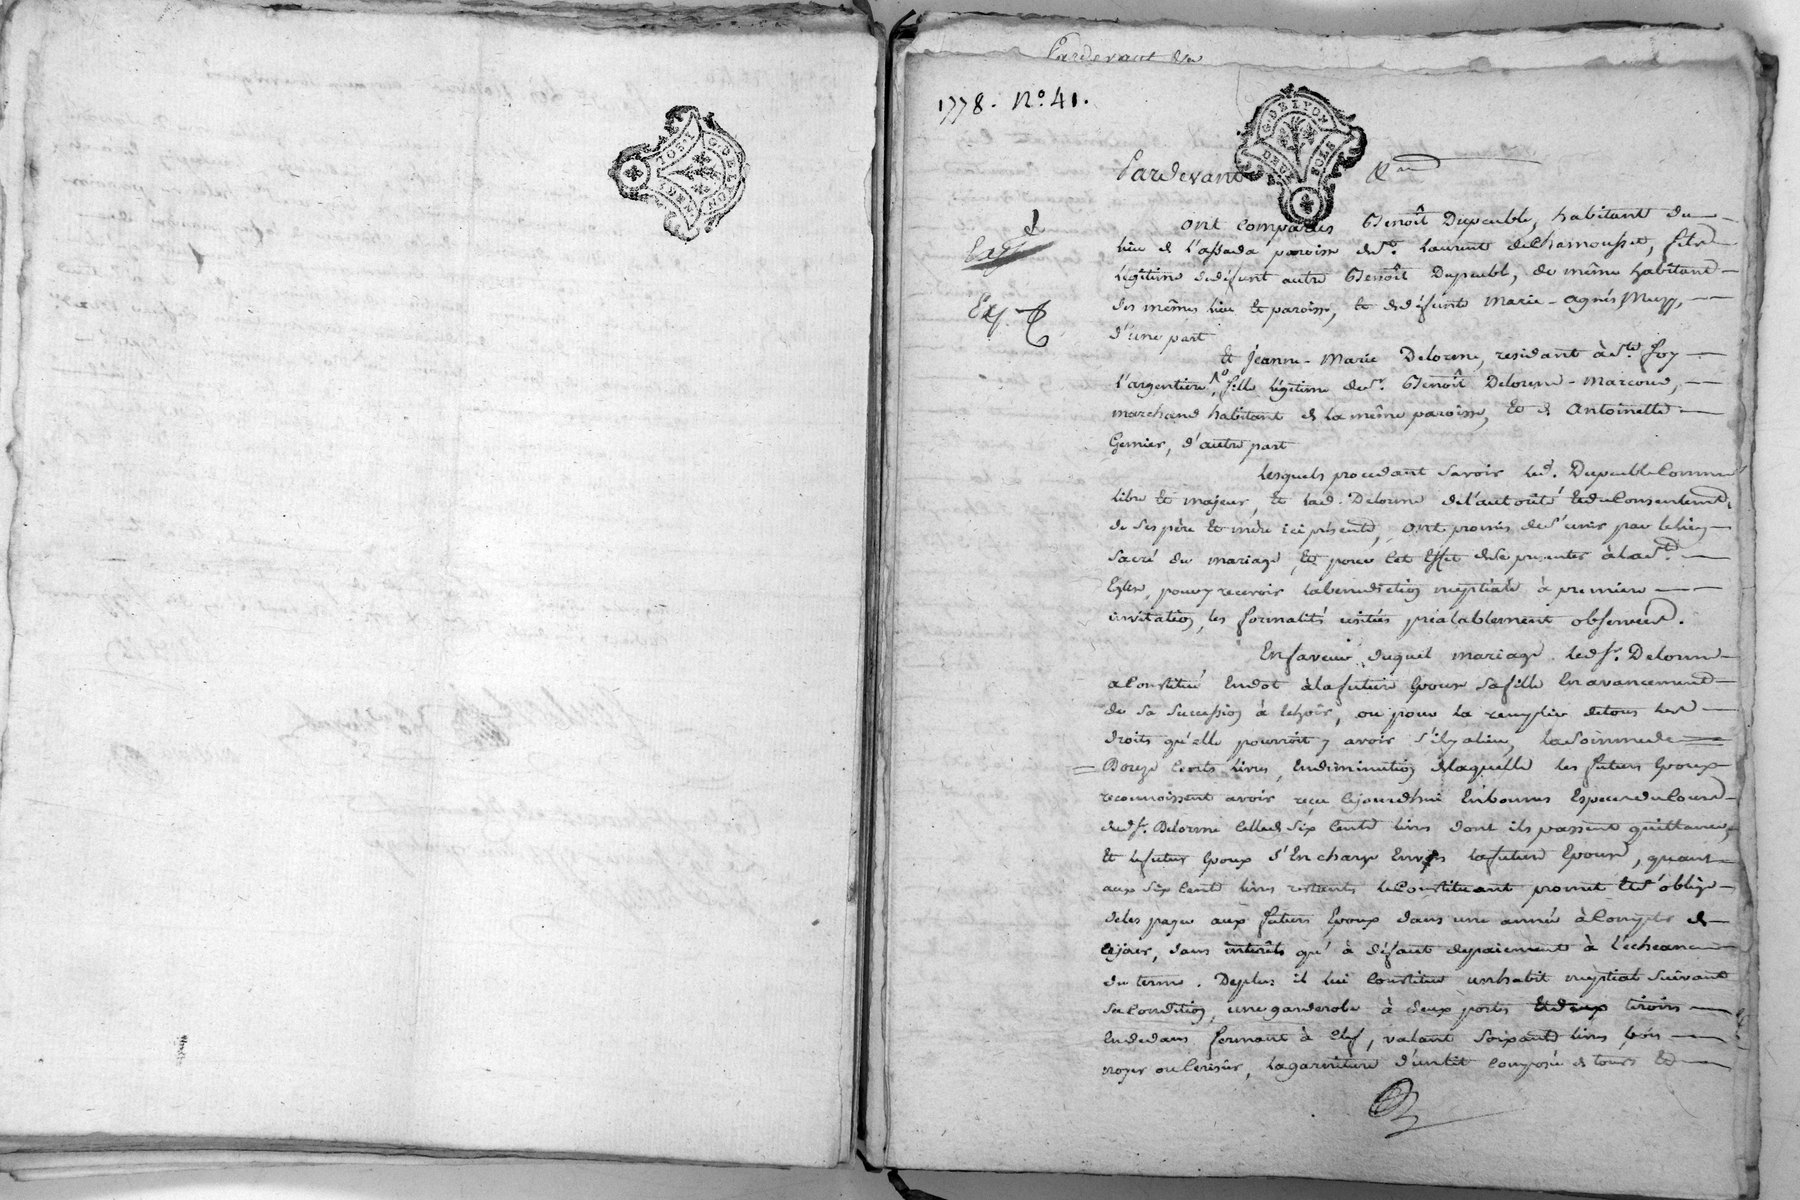 Pardevant &a
1778. N.o 41.
G. DE LYON
DEUX SOLS
G. DE LYON
Pardevant &a
Exp
Ont comparus Benoît Dupeuble, habitant du
lieu de l'assada paroisse de St. Laurent de Chamousset, fils
légitime dedéfunt autre Benoît Dupeubl, de même habitant
des mêmes lieu et paroisse, et de défunte Marie-Agnés
d'une part
Exp.
Et Jeanne-Marie Delorme, residant à Ste. foy
l'argentiere, fille légitime de Sr. Benoît Delorme-Marcoud,
marchand habitant de la même paroisse, et de Antoinette
d'autre part
Lesquels procedant savoir led. Dupeuble comme
libre et majeur, et lad. Delorme de l'autorité et du Consentement
de ses père et mère ici présents, ont promis de s'unir par le lien
sacré du mariage, et pour cet effet de se presenter à la Ste.
Eglise, pour y recevoir la benediction nuptiale à premiere
invitation, les formalités usitées préalablement observées.
En faveur duquel mariage led. Sr. Delorme
a Constitué en dot à la future Epouse sa fille en avancement
de sa succession à échoir, ou pour la remplir de tous les
droits qu'elle pourroit y avoir s'il y a lieu, la somme de
Douze cents livres, en diminution de laquelle les futurs Epoux
reconnoissent avoir reçu cejourdhui en bonnes Especes du Cours
dud. Sr. Delorme celle de Six Cents livres dont ils passent quittance,
et le futur Epoux s'en charge envers la future Epouse, quant
aux six cents livres restants le Constituant promet et s'oblige
de les payer aux futurs Epoux dans une année à Compter de
cejour, sans intérêts qu'à défaut de paiement à l'échéance
du terme. De plus il lui Constitue un habit nuptial suivant
sa Condition, une garderobe à deux portes et deux tiroirs
en dedans fermant à clef, valant soixante livres bois
noyer ou Cerisier, la garniture d'un lit composée de tours et